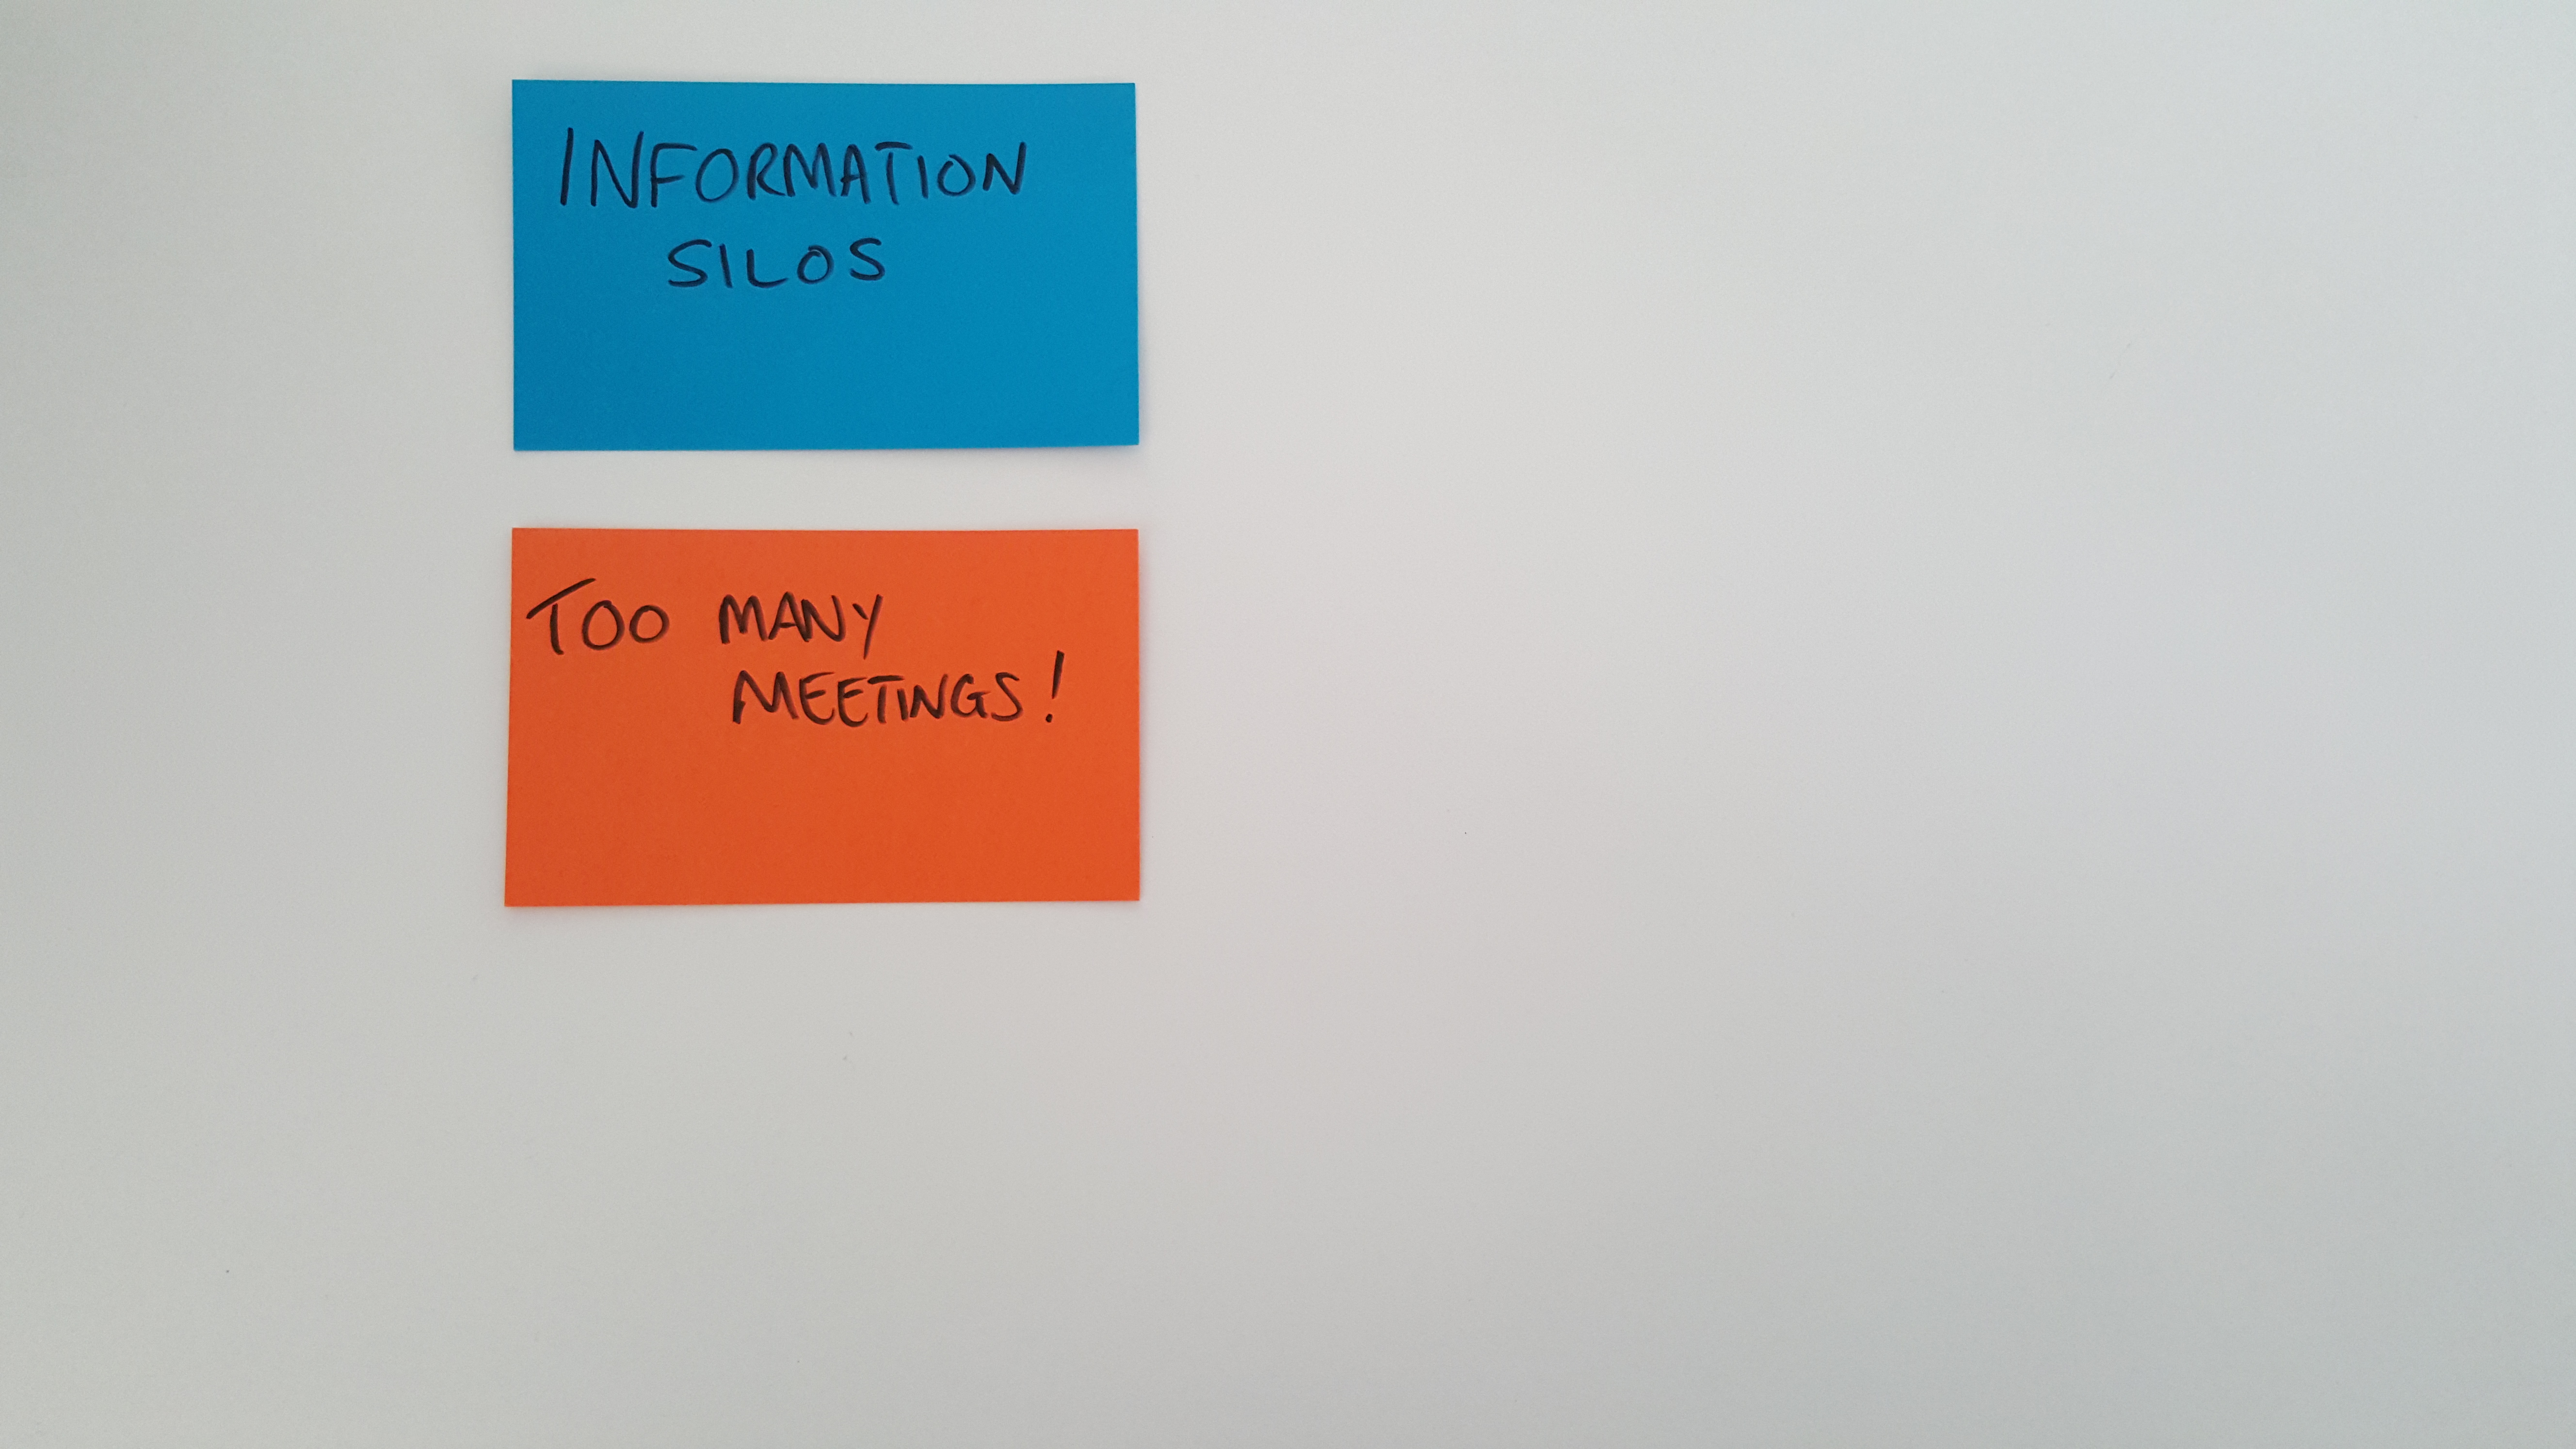 INFORMATION
SILOS
TOO MANY
MEETINGS!